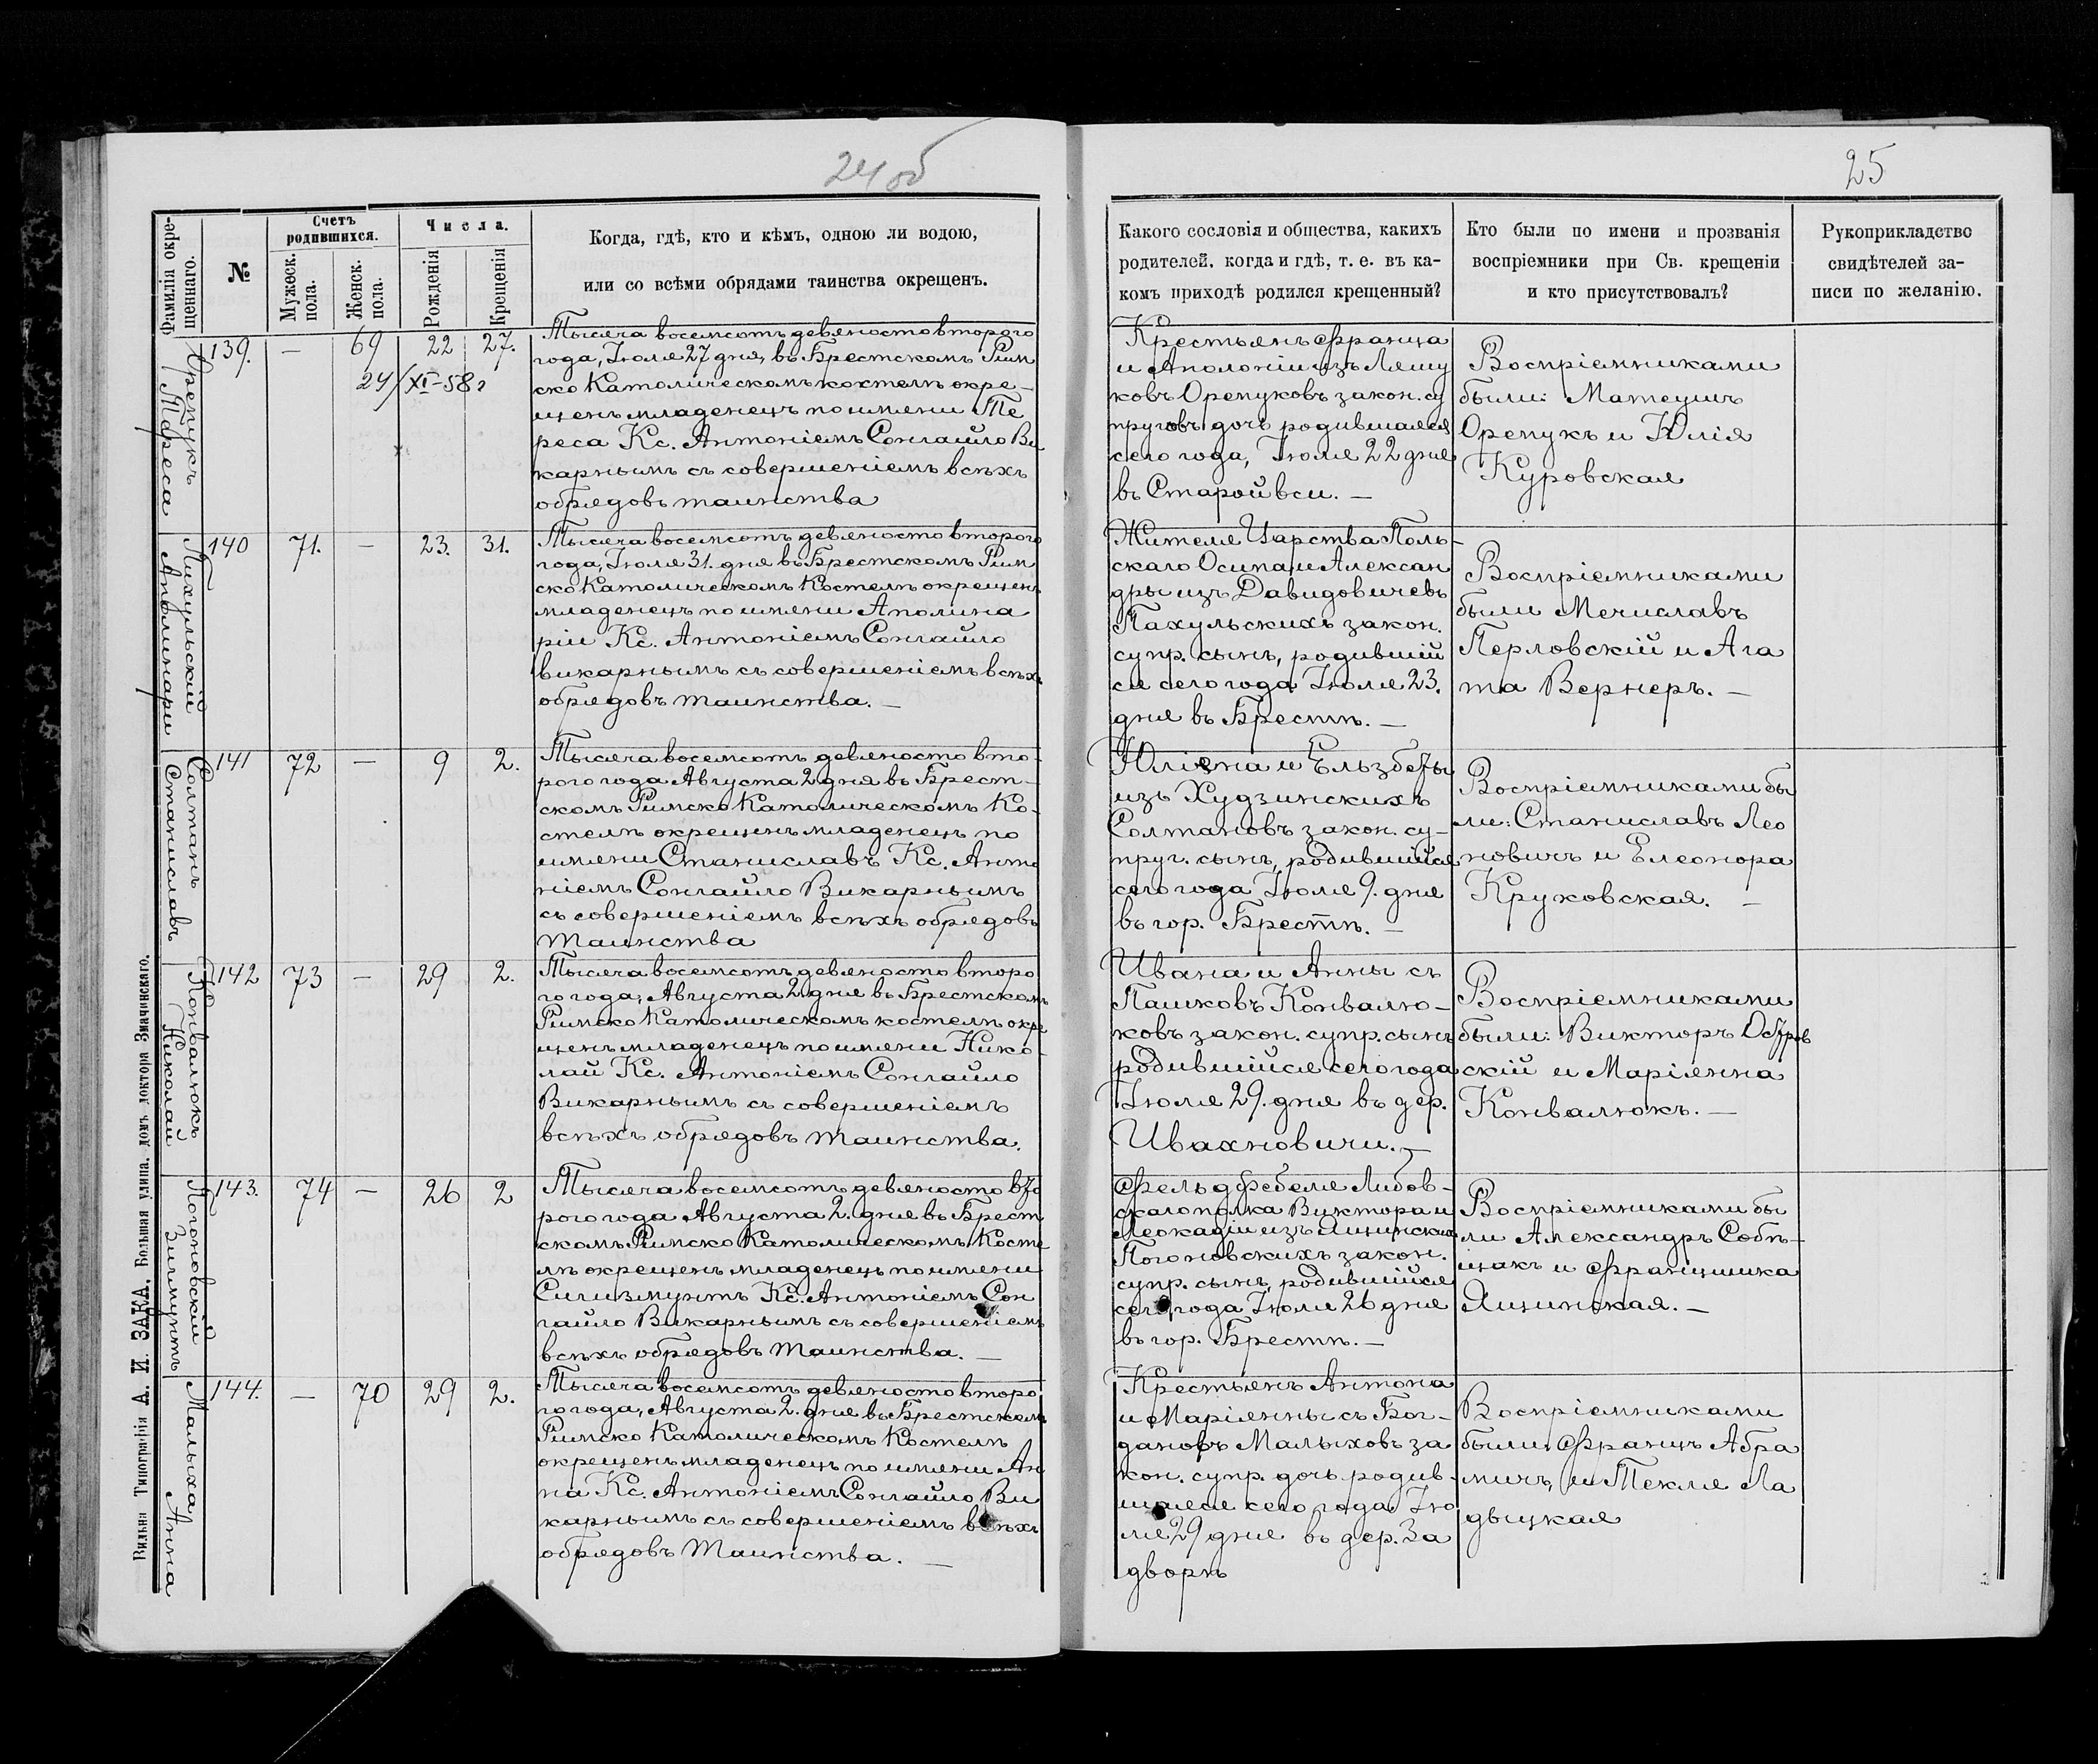 24 об
25
Фамилія окре-
щеннаго.
№
Счетъ
родившихся.
Мужеск.
пола.
Женск.
пола.
Числа.
Рожденія
Крещенія
Когда, гдѣ, кто и кѣмъ, одною ли водою,
или со всѣми обрядами таинства окрещенъ.
Какого сословія и общества, какихъ
родителей, когда и гдѣ, т. е. въ ка-
комъ приходѣ родился крещенный?
Кто были по имени и прозванія
воспріемники при Св. крещеніи
и кто присутствовалъ?
Рукоприкладство
свидѣтелей за-
писи по желанію.
Орепукъ
Тереса
139. — 69 22 27.
24/XI-58г
Тысяча восемсотъ девяносто второго
года, Іюля 27 дня, въ Брестскомъ Рим
ско Католическомъ костелѣ окре-
щенъ младенецъ по имени Те
реса Кс. Антоніемъ Сонгайло Ви
карнымъ съ совершеніемъ всѣхъ
обрядовъ таинства
Крестьянъ Франца
и Аполоніи изъ Лящу
ковъ Орепуковъ закон. су
пруговъ дочь родившаяся
сего года, Іюля 22 дня
въ Старой вси. —
Воспріемниками
были: Матеушъ
Орепукъ и Юлія
Куровская
Пахульскій
Аполинари
140 71. — 23. 31.
Тысяча восемсотъ девяносто второго
года, Іюля 31. дня въ Брестскомъ Рим
ско Католическомъ Костелѣ окрещенъ
младенецъ по имени Аполина
рій Кс. Антоніемъ Сонгайло
викарнымъ съ совершеніемъ всѣхъ
обрядовъ таинства. —
Жителя Царства Поль-
скаго Осипа и Алексан
дры изъ Давидовичевъ
Пахульскихъ закон.
супр. сынъ, родившій
ся сего года Іюля 23.
дня въ Брестѣ. —
Воспріемниками
были Мечиславъ
Перловскій и Ага
та Вернеръ. —
Солтанъ
Станиславъ
141 72 — 9 2.
Тысяча восемсотъ девяносто вто-
рого года Августа 2 дня въ Брест-
скомъ Римско Католическомъ Ко-
стелѣ окрещенъ младенецъ по
имени Станиславъ Кс. Анто
ніемъ Сонгайло Викарнымъ
съ совершеніемъ всѣхъ обрядовъ
Таинства
Юліяна и Ельзбеты
изъ Худзинскихъ
Солтановъ закон. су-
пруг. сынъ, родившійся
сего года Іюля 9. дня
въ гор. Брестѣ. —
Воспріемниками бы
ли: Станиславъ Лео
новичъ и Елеонора
Круковская. —
Конвалюкъ
Николай
142 73 — 29 2.
Тысяча восемсотъ девяносто второ
го года, Августа 2 дня въ Брестскомъ
Римско Католическомъ костелѣ окре
щенъ младенецъ по имени Нико-
лай Кс. Антоніемъ Сонгайло
Викарнымъ съ совершеніемъ
всѣхъ обрядовъ таинства.
Ивана и Анны съ
Пашковъ Конвалю-
ковъ закон. супр. сынъ
родившійся сего года
Іюля 29. дня въ дер.
Ивахновичи. —
Воспріемниками
были: Викторъ Остров
скій и Маріянна
Конвалюкъ. —
Погоновскій
Зигмунтъ
143. 74 — 26 2
Тысяча восемсотъ девяносто вто
рого года Августа 2. дня въ Брест
скомъ Римско Католическомъ Косте
лѣ окрещенъ младенецъ по имени
Сигизмунтъ Кс. Антоніемъ Сон
гайло Викарнымъ съ совершеніемъ
всѣхъ обрядовъ Таинства. —
Фельдфебеля Либов-
скаго полка Виктора и
Леокадіи изъ Ящинскихъ
Погоновскихъ закон.
супр. сынъ, родившійся
сего года Іюля 26 дня
въ гор. Брестѣ. —
Воспріемниками бы
ли Александръ Собѣ-
щакъ и Францишка
Ящинская. —
Малыха
Анна
144. — 70 29 2.
Тысяча восемсотъ девяносто второ
го года, Августа 2. дня въ Брестскомъ
Римско Католическомъ Костелѣ
окрещенъ младенецъ по имени Ан
на Кс. Антоніемъ Сонгайло Ви
карнымъ съ совершеніемъ всѣхъ
обрядовъ Таинства. —
Крестьянъ Антона
и Маріянны съ Бог-
дановъ Малыховъ за
кон. супр. дочь родив-
шаяся сего года Ію
ля 29 дня въ дер. За
дворѣ
Воспріемниками
были: Францъ Абра
мичъ и Текля Ла
дыцкая
Вильна Типографія А. И. ЗАКА, Большая улица, домъ доктора Змачинскаго.